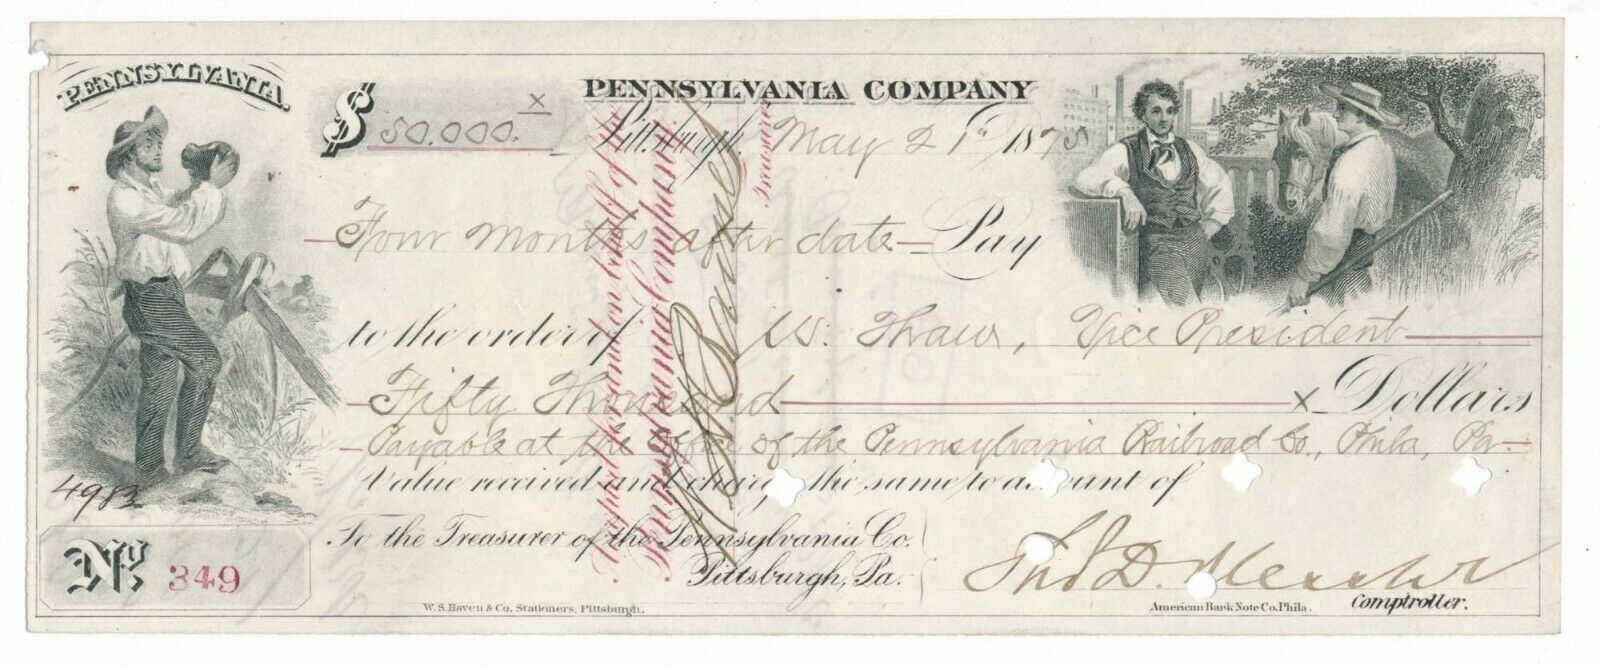 PENNSYLVANIA.
$ 50.000. x
PENNSYLVANIA COMPANY
Pittsburgh, May 21st 1875
Four months after date Pay
to the order of W. Thaw, Vice President
Fifty Thousand x Dollars
Payable at the Office of the Pennsylvania Railroad Co., Phila, Pa.
Value received and charge the same to account of
4983
To the Treasurer of the Pennsylvania Co.
Pittsburgh, Pa.
No. 349
Jno D. Messler
Comptroller.
W. S. Haven & Co. Stationers, Pittsburgh.
American Bank Note Co. Phila.
Accepted for and on behalf of the
Pennsylvania Company.
Treasurer